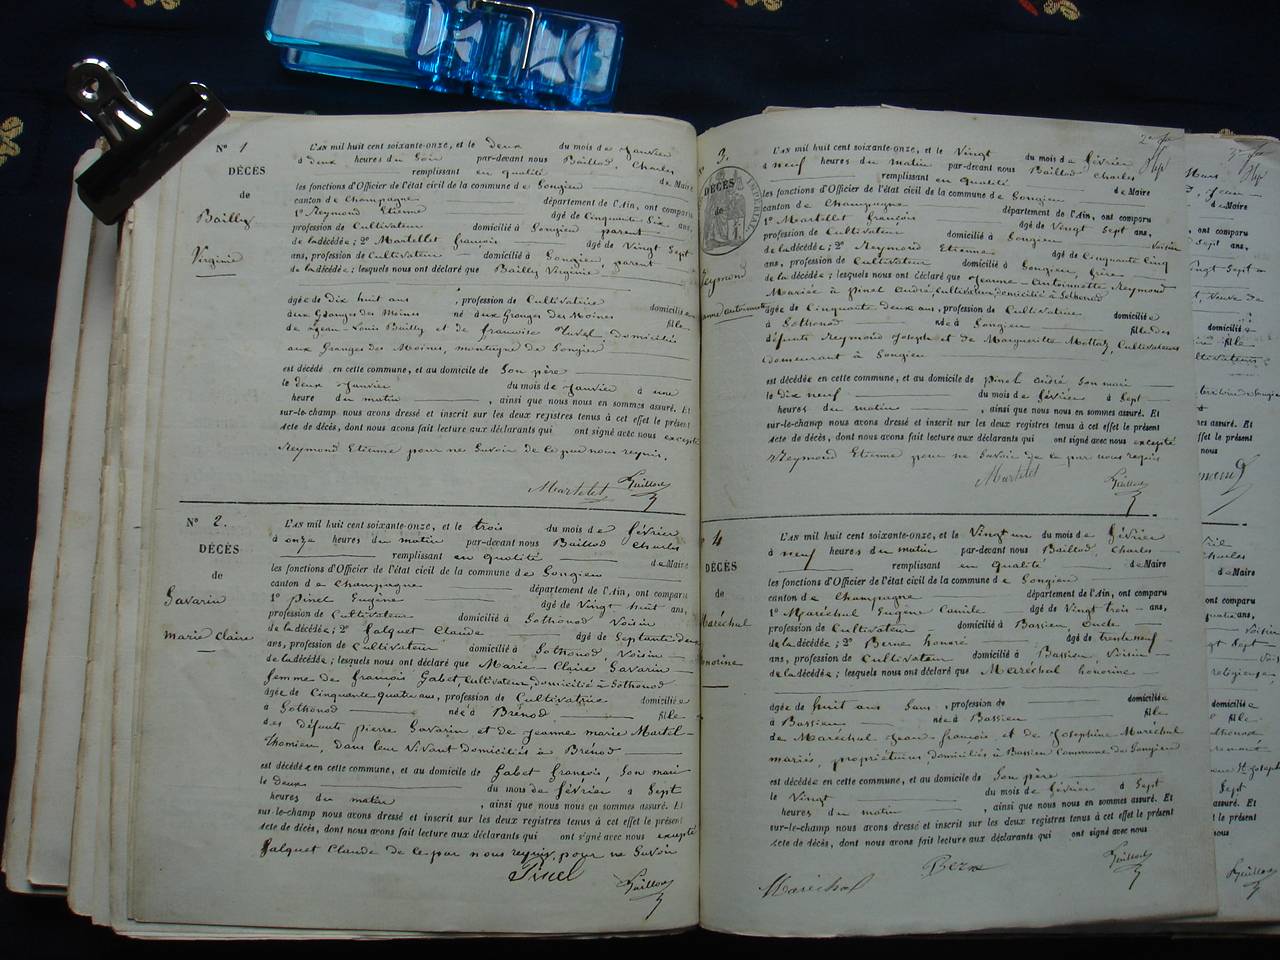 N° 1
DÉCÈS
de
Bailly
Virginie
L'AN mil huit cent soixante-onze, et le deux du mois de Janvier
à deux heures du Soir par-devant nous Baillod Charles
remplissant en qualité de Maire
les fonctions d'Officier de l'état civil de la commune de Songieu
canton de Champagne département de l'Ain, ont comparu
1° Reymond Etienne âgé de Cinquante Six ans,
profession de Cultivateur domicilié à Songieu parent
de la décédée; 2° Martellet françois âgé de Vingt Sept
ans, profession de Cultivateur domicilié à Songieu, parent
de la décédée; lesquels nous ont déclaré que Bailly Virginie
âgée de Dix huit ans, profession de Cultivatrice domiciliée
aux Granges des Moines né aux Granges des Moines fille
de Jean Louis Bailly et de françoise Juval domiciliés
aux Granges des Moines, montagne de Songieu
est décédé en cette commune, et au domicile de Son père
le deux Janvier du mois de Janvier à une
heure du matin, ainsi que nous nous en sommes assuré. Et
sur-le-champ nous avons dressé et inscrit sur les deux registres tenus à cet effet le présent
acte de décès, dont nous avons fait lecture aux déclarants qui ont signé avec nous excepté
Reymond Etienne pour ne Savoir de le par nous requis.
Martelet Baillod
N° 2.
DÉCÈS
de
Savarin
marie Claire
L'AN mil huit cent soixante-onze, et le trois du mois de février
à onze heures du matin par-devant nous Baillod Charles
remplissant en qualité de Maire
les fonctions d'Officier de l'état civil de la commune de Songieu
canton de Champagne département de l'Ain, ont comparu
1° Pinel Eugène âgé de Vingt huit ans,
profession de Cultivateur domicilié à Sothonod Voisin
de la décédée; 2° Falquet Claude âgé de Septante deux
ans, profession de Cultivateur domicilié à Sothonod Voisin
de la décédée; lesquels nous ont déclaré que Marie-Claire Savarin
femme de françois Gabet, Cultivateur, domicilié à Sothonod
âgée de Cinquante quatre ans, profession de Cultivatrice domiciliée
à Sothonod née à Brénod fille
des défunts pierre Savarin et de Jeanne marie Martel-
Thomieu, dans leur Vivant domiciliés à Brénod
est décédée en cette commune, et au domicile de Gabet françois, Son mari
le deux du mois de février à Sept
heures du matin, ainsi que nous nous en sommes assuré. Et
sur-le-champ nous avons dressé et inscrit sur les deux registres tenus à cet effet le présent
acte de décès, dont nous avons fait lecture aux déclarants qui ont signé avec nous excepté
Falquet Claude de le par nous requis, pour ne Savoir
Pinel Baillod
3.
DÉCÈS
de
Reymond
L'AN mil huit cent soixante-onze, et le Vingt du mois de février
à neuf heures du matin par-devant nous Baillod Charles
remplissant en qualité de Maire
les fonctions d'Officier de l'état civil de la commune de Songieu
canton de Champagne département de l'Ain, ont comparu
1° Martellet françois âgé de Vingt Sept ans,
profession de Cultivateur domicilié à Songieu Voisin
de la décédée; 2° Reymond Etienne âgé de Cinquante Cinq
ans, profession de Cultivateur domicilié à Songieu, frère
de la décédée; lesquels nous ont déclaré que Jeanne-Antoinette Reymond
Mariée à pinel André, Cultivateur, domicilié à Sothonod
âgée de Cinquante deux ans, profession de Cultivatrice domiciliée
à Sothonod née à Songieu fille des
défunts Reymond Joseph et de Marguerite Mottaz, Cultivateurs
demeurant à Songieu
est décédée en cette commune, et au domicile de pinel André Son mari
le dix neuf du mois de février à Sept
heures du matin, ainsi que nous nous en sommes assuré. Et
sur-le-champ nous avons dressé et inscrit sur les deux registres tenus à cet effet le présent
acte de décès, dont nous avons fait lecture aux déclarants qui ont signé avec nous excepté
Reymond Etienne pour ne Savoir de le par nous requis
Martelet Baillod
4
DÉCÈS
de
Maréchal
honorine
L'AN mil huit cent soixante-onze, et le Vingt un du mois de février
à neuf heures du matin par-devant nous Baillod Charles
remplissant en qualité de Maire
les fonctions d'Officier de l'état civil de la commune de Songieu
canton de Champagne département de l'Ain, ont comparu
1° Maréchal Eugène Camille âgé de Vingt trois ans,
profession de Cultivateur domicilié à Bassieu, oncle
de la décédée; 2° Berne honoré âgé de trente neuf
ans, profession de Cultivateur domicilié à Bassieu Voisin
de la décédée; lesquels nous ont déclaré que Maréchal honorine
âgée de huit ans Sans, profession de domiciliée
à Bassieu née à Bassieu fille
de Maréchal Jean-françois, et de Josephine Maréchal
mariés, propriétaires, domiciliés à Bassieu Commune de Songieu
est décédée en cette commune, et au domicile de Son père
le Vingt du mois de février à Sept
heures du matin, ainsi que nous nous en sommes assuré. Et
sur-le-champ nous avons dressé et inscrit sur les deux registres tenus à cet effet le présent
acte de décès, dont nous avons fait lecture aux déclarants qui ont signé avec nous
Maréchal Berne Baillod